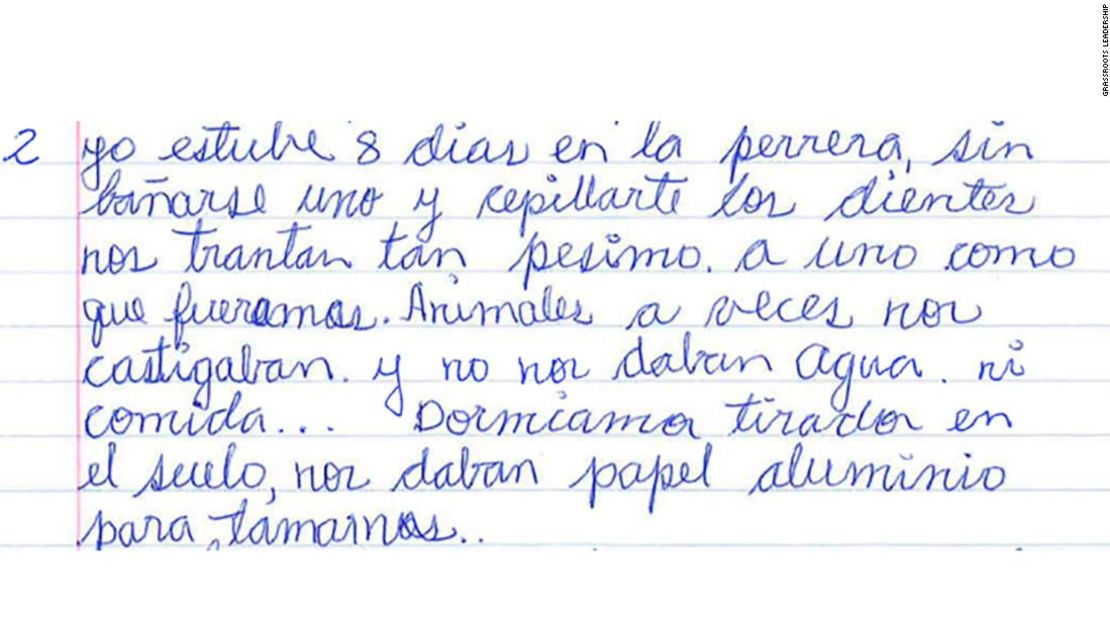 GRASSROOTS LEADERSHIP
2 yo estube 8 dias en la perrera, sin
bañarse uno y cepillarte los dientes
nos trantan tan pesimo. a uno como
que fueramos. Animales a veces nos
castigaban. y no nos daban agua. ni
comida... Dormiamos tirados en
el suelo, nos daban papel aluminio
para tamarnos..